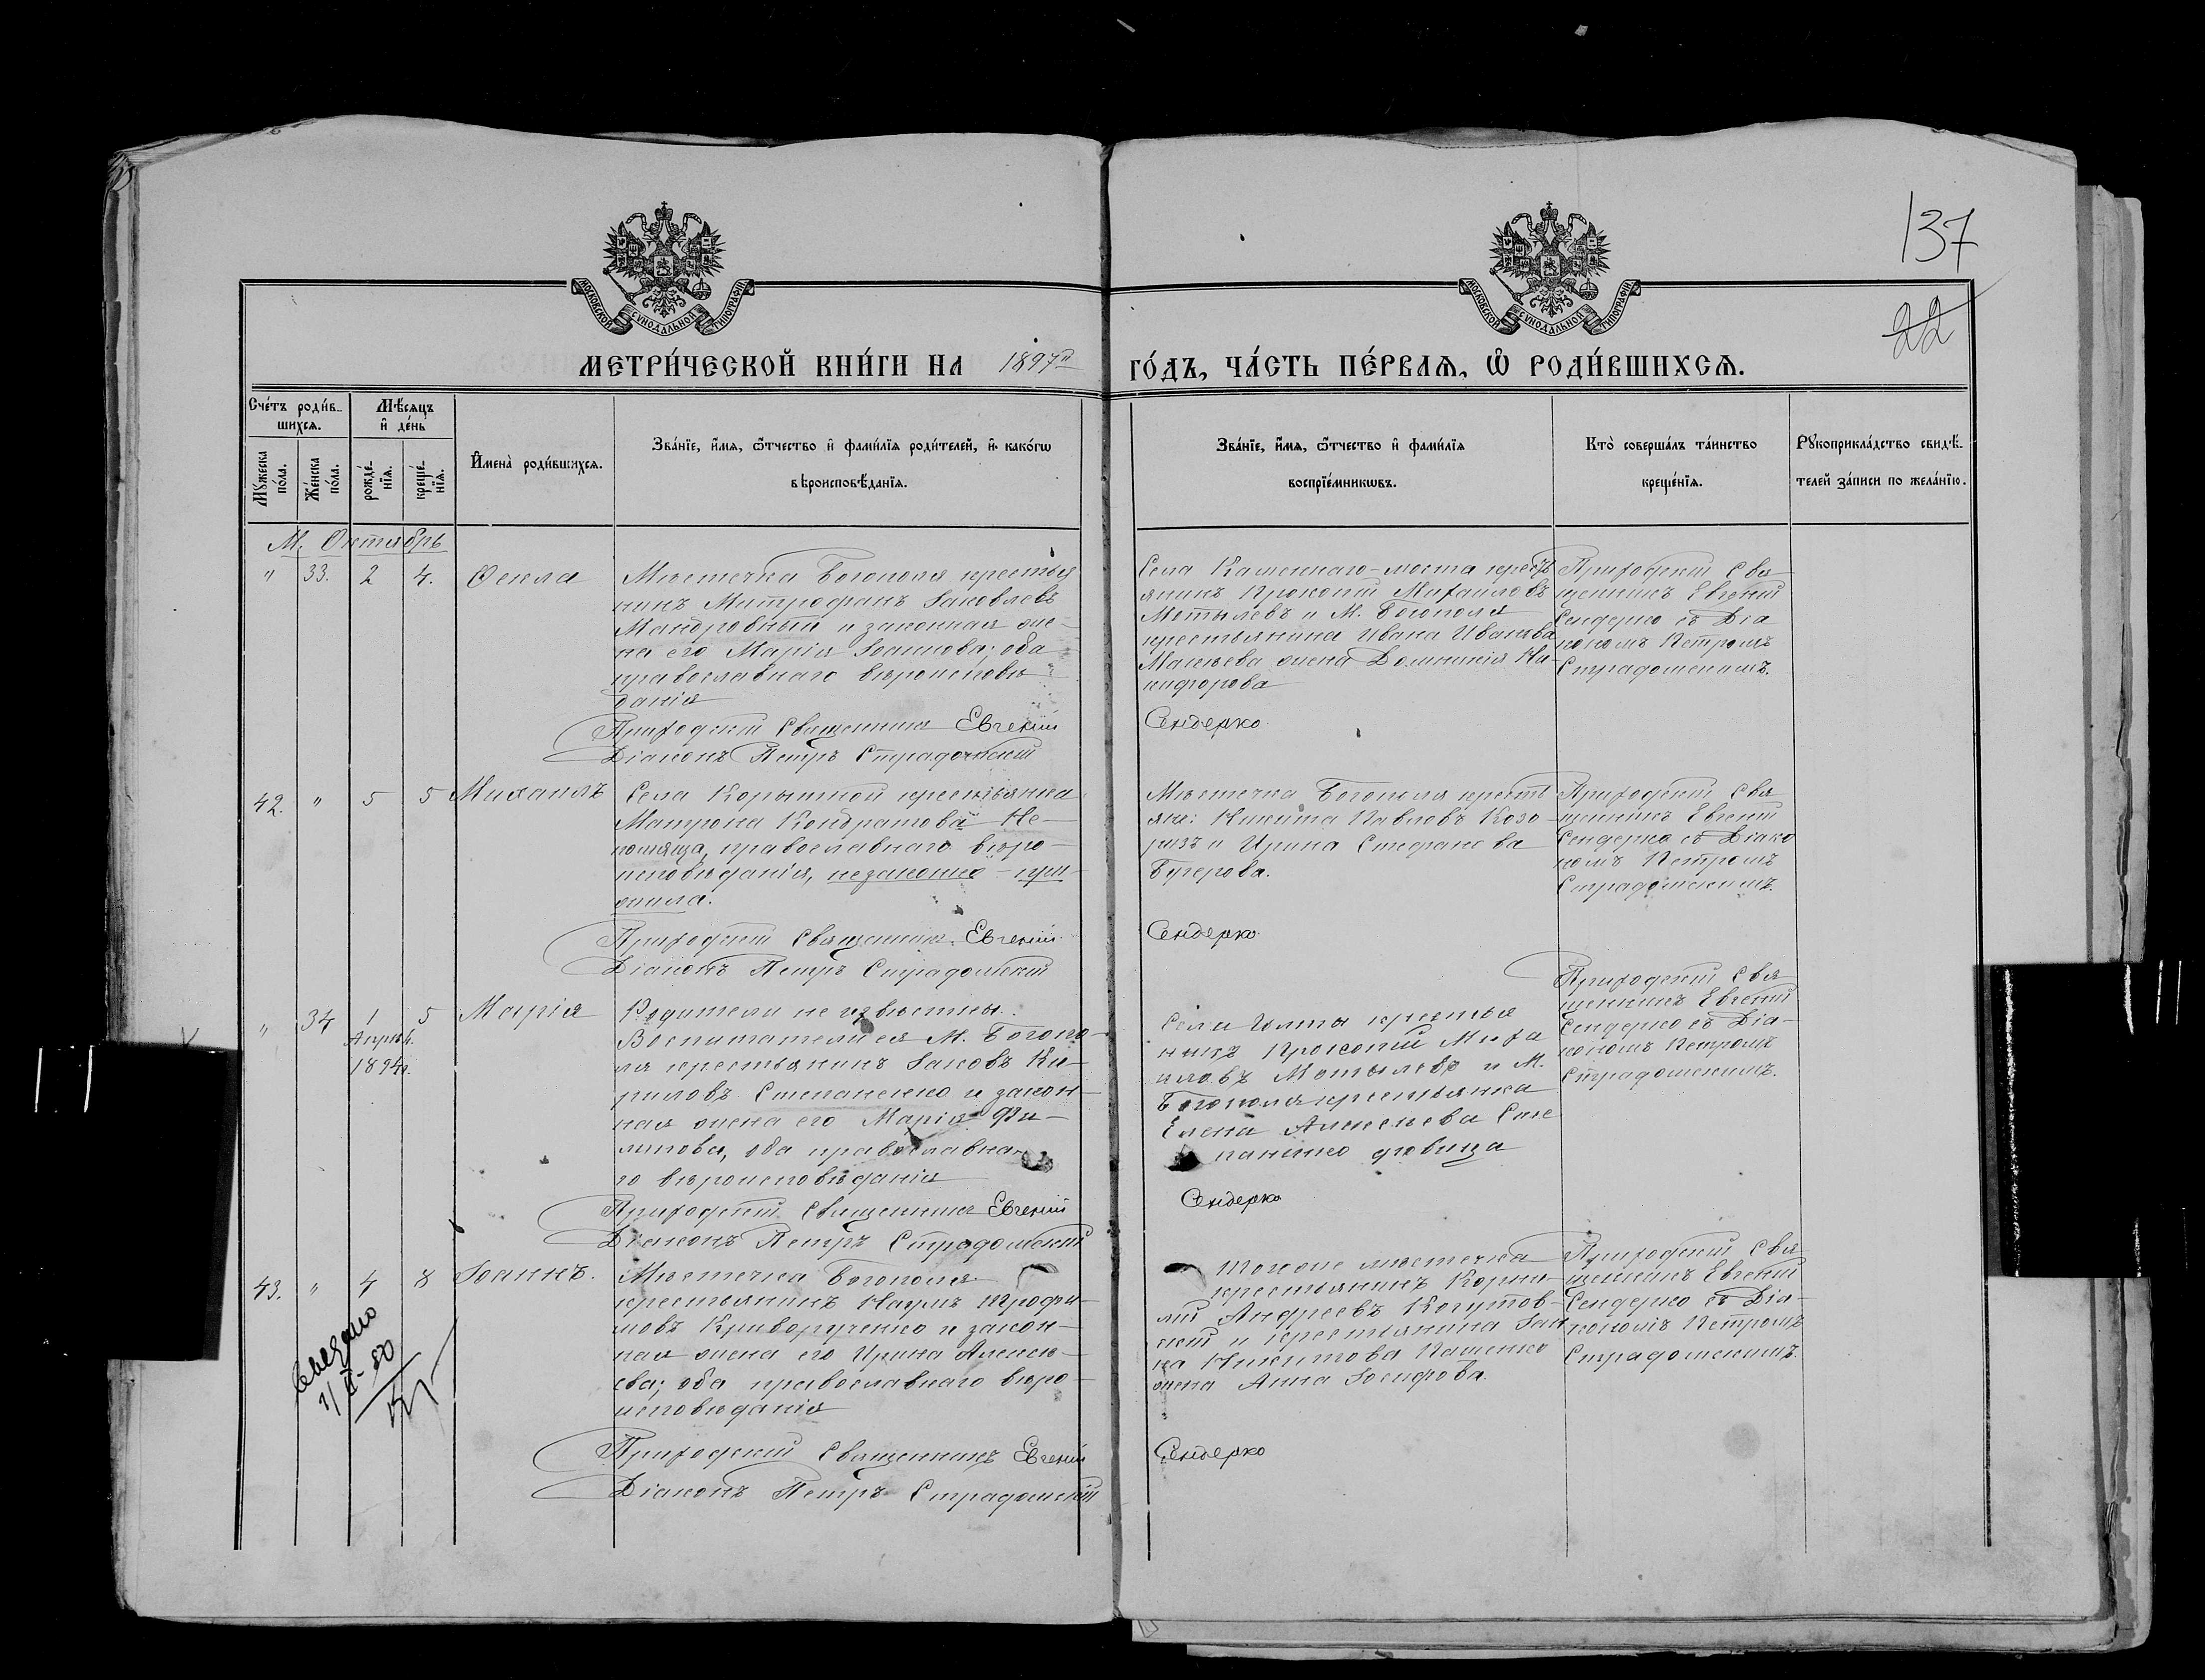 137
22
МОСКОВСКОЙ СѴНОДАЛЬНОЙ ТИПОГРАФІИ
МОСКОВСКОЙ СѴНОДАЛЬНОЙ ТИПОГРАФІИ
МЕТРИ́ЧЕСКОЙ КНИ́ГИ НА 1897й ГО́ДЪ, ЧА́СТЬ ПЕ́РВАѦ, Ѡ҆ РОДИ́ВШИХСѦ.
Сче́тъ роди́в-
шихсѧ.
Мѣ́сѧцъ
и҆ де́нь
Мꙋ́жеска
по́ла.
Же́нска
по́ла.
рожде́-
нїѧ.
креще́-
нїѧ.
И҆мена̀ роди́вшихсѧ.
Зва́нїе, и҆́мѧ, ѻ҆́тчество и҆ фами́лїѧ роди́телей, и҆ како́гѡ
вѣроисповѣ́данїѧ.
Зва́нїе, и҆́мѧ, ѻ҆́тчество и҆ фами́лїѧ
воспрїе́мникѡвъ.
Кто̀ соверша́лъ та́инство
креще́нїѧ.
Рꙋкоприкла́дство свидѣ́-
телей за́писи по жела́нїю.
М. Октябрь
" 33. 2 4. Ѳекла
Мѣстечка Богополя крестья
нинъ Митрофанъ Іаковлевъ
Мандровный и законная же-
на его Марія Іоаннова; оба
православнаго вѣроисповѣ
данія
Приходскій Священникъ Евгеній
Діаконъ Петръ Страдомскій
Села Каменнаго-моста кресть
янинъ Прокопій Михаиловъ
Мотылевъ и М. Богополя
крестьянина Ивана Иванова
жена Домникія Ни-
кифорова
Сендерко
Приходскій Свя-
щенникъ Евгеній
Сендерко съ Діа
кономъ Петромъ
Страдомскимъ.
42. " 5 5 Михаилъ
Села Корытной крестьянка
Матрона Кондратова Не-
православнаго вѣро-
исповѣданія, незаконно-при-
жила.
Приходскій Священникъ Евгеній
Діаконъ Петръ Страдомскій
Мѣстечка Богополя кресть
яне: Никита Павловъ Козо-
ризъ и Ирина Стефанова
Бугерова.
Сендерко
Приходскій Свя
щенникъ Евгеній
Сендерко съ Діако
номъ Петромъ
Страдомскимъ.
" 34 1 5 Марія
Апрѣл.
1894г.
Родители не извѣстны.
Воспитатели ея М. Богопо-
ля крестьянинъ Іаковъ Ки-
риловъ Степаненко и закон-
ная жена его Марія Фи-
липова, оба православна-
го вѣроисповѣданія
Приходскій Священникъ Евгеній
Діаконъ Петръ Страдомскій
Села крестья
нинъ Прокопій Миха
иловъ Мотылевъ и М.
Богополя крестьянка
Елена Алексѣева Сте
паненко дѣвица
Сендерко
Приходскій Свя-
щенникъ Евгеній
Сендерко съ Діа-
кономъ Петромъ
Страдомскимъ.
43. " 4 8 Іоаннъ.
Мѣстечка Богополя
крестьянинъ Наумъ Трофи-
мовъ Криворученко и закон-
ная жена его Ирина Алексѣ-
ева; оба православнаго вѣро-
исповѣданія
Приходскій Священникъ Евгеній
Діаконъ Петръ Страдомскій
Тогоже мѣстечка
крестьянинъ Корни-
лій Андреевъ Когутов-
скій и крестьянина Іан
на Никитова Пащенко
жена Анна Іосифова.
Сендерко
Приходскій Свя
щенникъ Евгеній
Сендерко съ Діа-
кономъ Петромъ
Страдомскимъ.